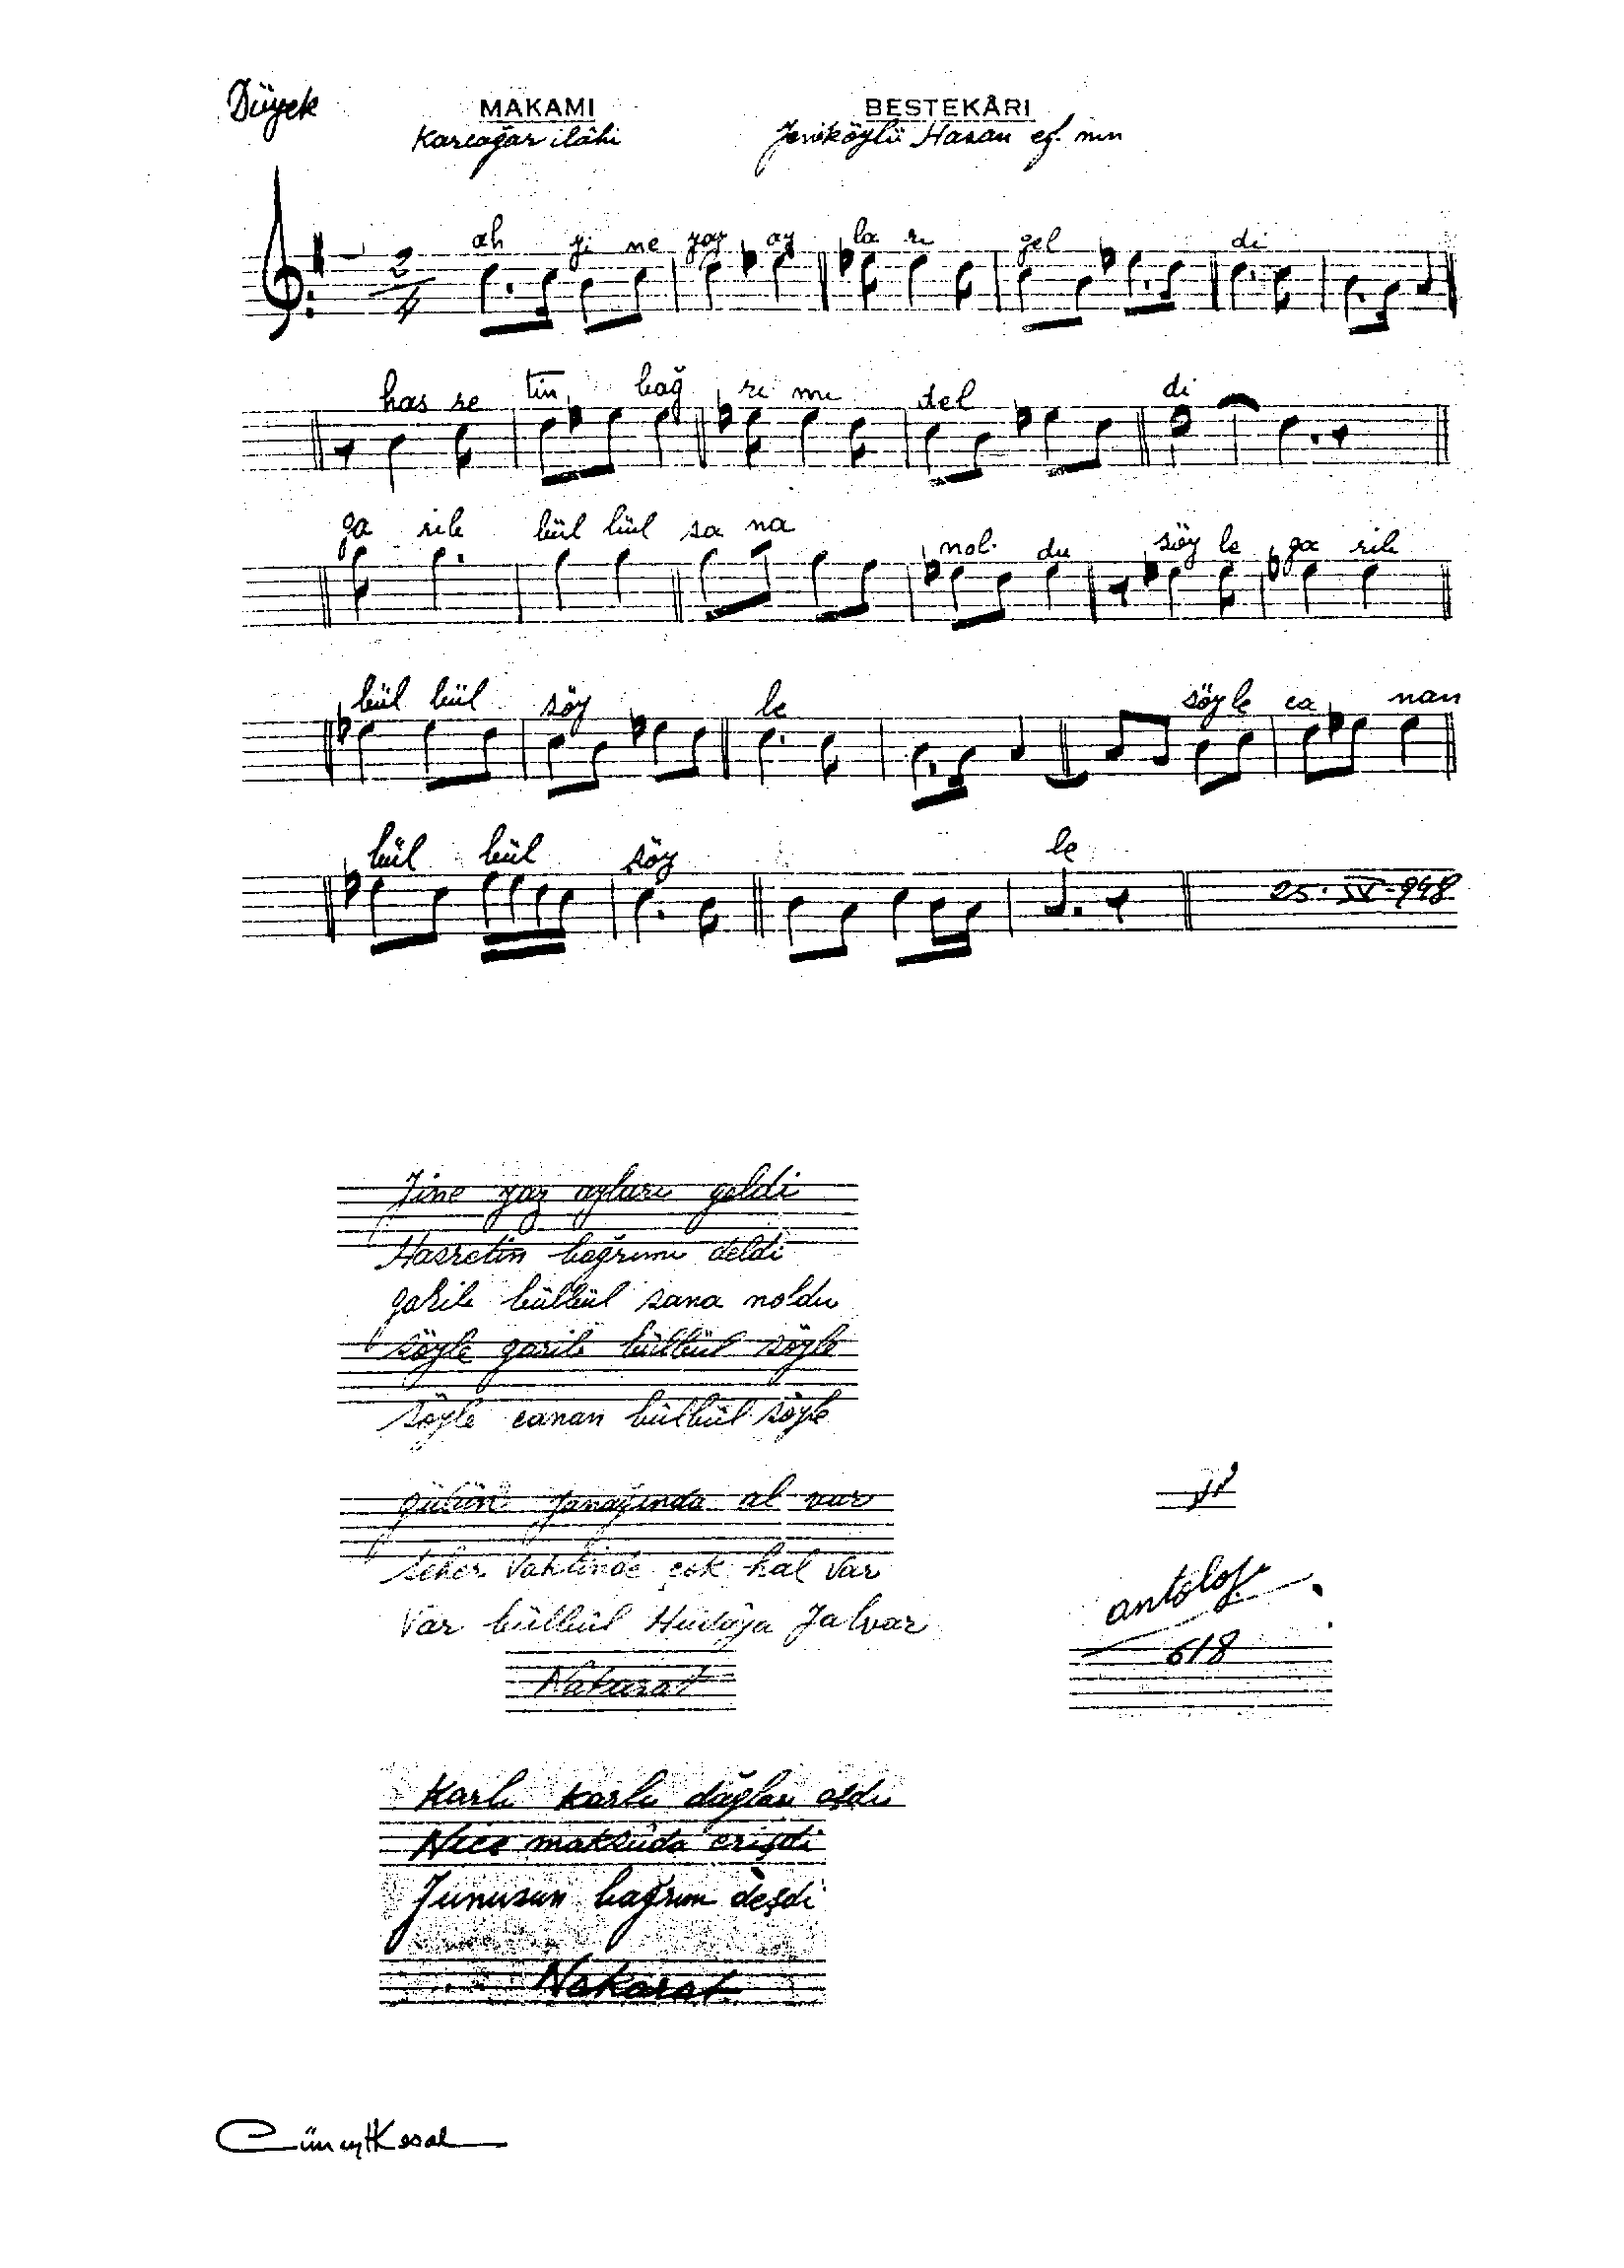 Düyek
MAKAMI
Karcığar ilâhi
BESTEKÂRI
Jeniköylü Hasan ef. nın
2/4
ah ji ne yaz ay la rı gel di
has re tin bağ rı mı del di
ga rib bül bül sa na nol du söy le ga rib
bül bül söy le söy le ca nan
bül bül söy le
25. IV-948
Jine yaz ayları geldi
Hasretin bağrımı deldi
garib bülbül sana noldu
söyle garib bülbül söyle
söyle canan bülbül söyle
gülün yanağında al var
seher vaktinde çok hal var
Var bülbül Hüdâya Jalvar
Nakarat
antoloji
618
Karlı karlı dağları aşdı
Nice maksûda erişdi
Junusun bağrın deşdi
Nakarat
Cüneyt Kosal